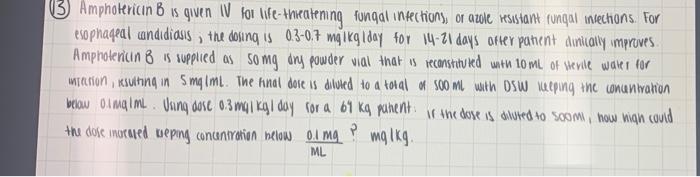 13) Amphotericin B is given IV for life-threatening fungal infections, or azole resistant fungal infections. For
esophageal candidiasis, the dosing is 0.3-0.7 mg/kg/day for 14-21 days after patient clinically improves.
Amphotericin B is supplied as 50mg dry powder vial that is reconstituted with 10 mL of sterile water for
resulting in 5mg/mL. The final dose is diluted to a total of 500 mL with D5W keeping the concentration
below 0.1mg/mL. Using dose 0.3mg/kg/day for a 69 kg patient. If the dose is diluted to 500ml, how high could
the dose increased keeping concentration below 0.1 mg/ML? mg/kg.